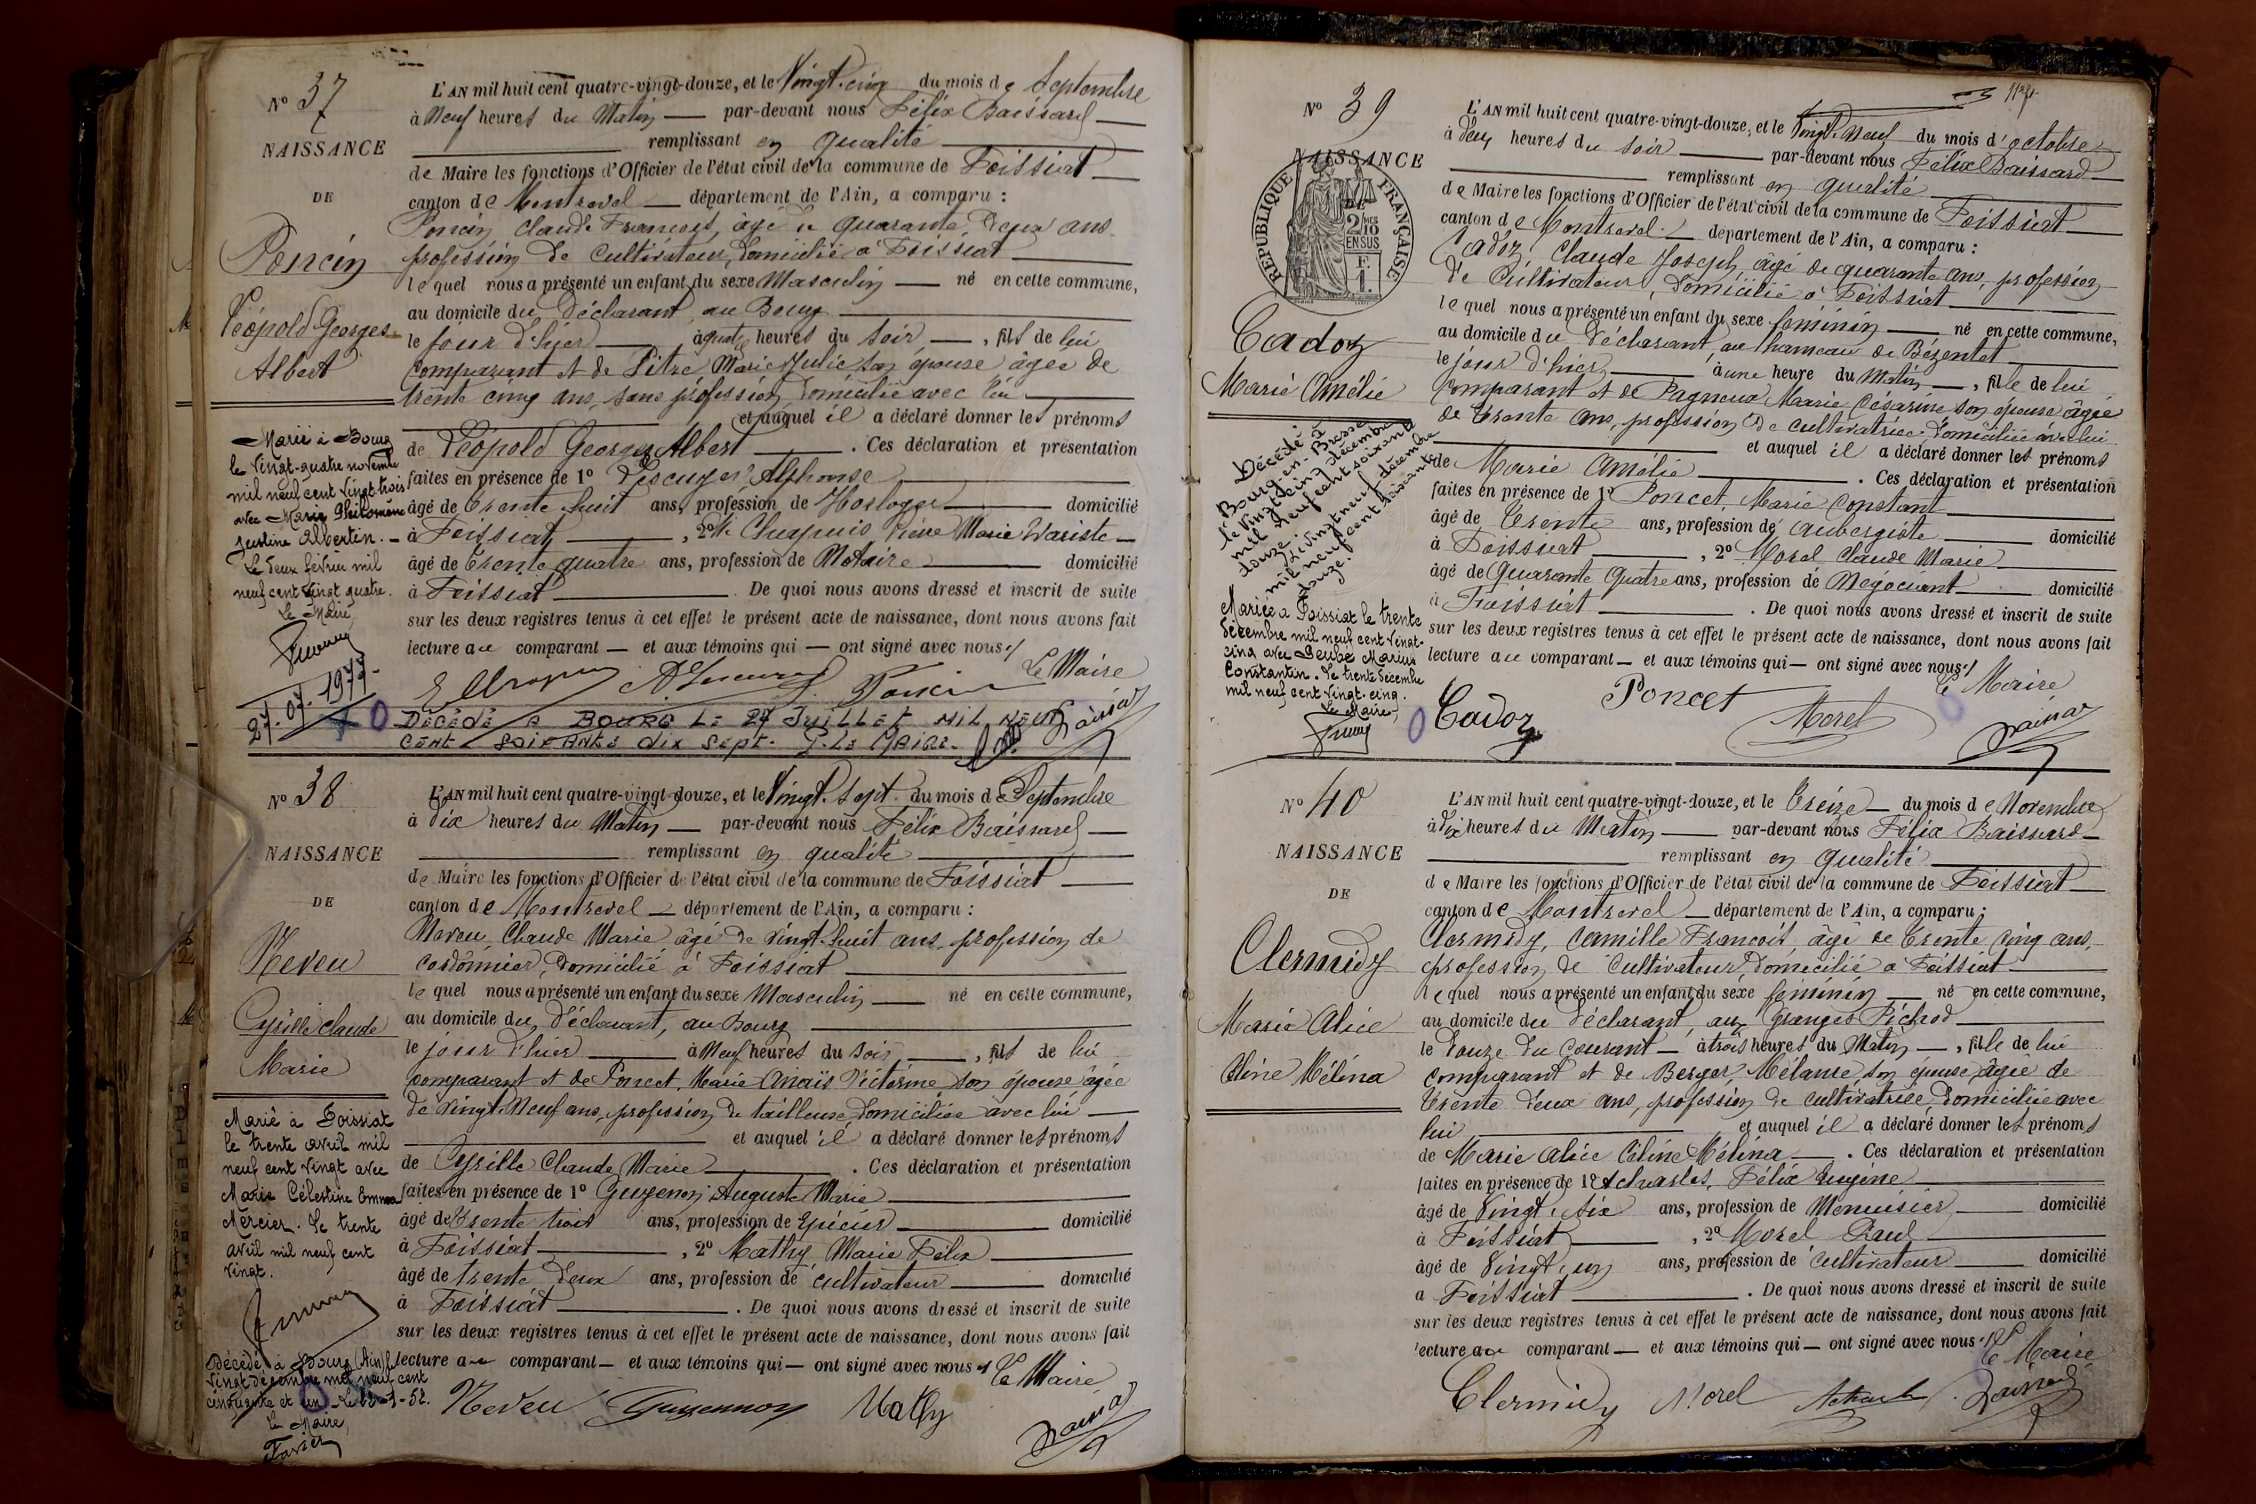 N° 37
NAISSANCE
DE
Poncin
Léopold Georges
Albert
L'AN mil huit cent quatre-vingt-douze, et le Vingt-cinq du mois de Septembre
à Neuf heures du Matin par-devant nous Félix Baissard
remplissant en qualité
de Maire les fonctions d'Officier de l'état civil de la commune de Foissiat
canton de Montrevel département de l'Ain, a comparu :
Poncin Claude François, âgé de quarante deux ans
profession de Cultivateur, domicilié à Foissiat
lequel nous a présenté un enfant du sexe Masculin né en cette commune,
au domicile du Déclarant, au Bourg
le jour d'hier à quatre heures du soir, fils de lui
comparant et de Pitre Marie Julie son épouse âgée de
trente cinq ans, sans profession, domiciliée avec lui
et auquel il a déclaré donner les prénoms
de Léopold Georges Albert. Ces déclaration et présentation
faites en présence de 1° Lescuyer Alphonse
âgé de trente huit ans, profession de Horloger domicilié
à Foissiat, 2° Chapuis Marie
âgé de trente quatre ans, profession de Notaire domicilié
à Foissiat. De quoi nous avons dressé et inscrit de suite
sur les deux registres tenus à cet effet le présent acte de naissance, dont nous avons fait
lecture au comparant et aux témoins qui ont signé avec nous
Le Maire
Poncin
Marié à Bourg
le vingt-quatre novembre
mil neuf cent vingt-trois
avec Marie Philomène
Justine Albertin. -
Le deux février mil
neuf cent vingt quatre.
Le Maire,
27.07.1977-
DÉCÉDÉ A BOURG LE 27 JUILLET MIL NEUF
CENT SOIXANTE dix sept. P. LE MAIRE.
N° 38
NAISSANCE
DE
Neveu
Cyrille Claude
Marie
L'AN mil huit cent quatre-vingt-douze, et le Vingt-Sept du mois de Septembre
à dix heures du Matin par-devant nous Félix Baissard
remplissant en qualité
de Maire les fonctions d'Officier de l'état civil de la commune de Foissiat
canton de Montrevel département de l'Ain, a comparu :
Neveu, Claude Marie âgé de vingt-huit ans profession de
cordonnier, domicilié à Foissiat
lequel nous a présenté un enfant du sexe Masculin né en cette commune,
au domicile du Déclarant, au Bourg
le jour d'hier à Neuf heures du soir, fils de lui
comparant et de Poncet, Marie Anaïs Victorine son épouse âgée
de vingt-neuf ans, profession de tailleuse domiciliée avec lui
et auquel il a déclaré donner les prénoms
de Cyrille Claude Marie. Ces déclaration et présentation
faites en présence de 1° Guyennon, Auguste Marie
âgé de trente trois ans, profession de Epicier domicilié
à Foissiat, 2° Mathy Marie Félix
âgé de trente deux ans, profession de cultivateur domicilié
à Foissiat. De quoi nous avons dressé et inscrit de suite
sur les deux registres tenus à cet effet le présent acte de naissance, dont nous avons fait
lecture au comparant et aux témoins qui ont signé avec nous
Le Maire
Neveu Guyennon Mathy
Marié à Foissiat
le trente avril mil
neuf cent vingt avec
Marie Célestine Emma
Mercier. Le trente
avril mil neuf cent
vingt.
Décédé à Bourg (Ain) le
vingt décembre mil neuf cent
cinquante et un
Le Maire,
N° 39
NAISSANCE
DE
RÉPUBLIQUE FRANÇAISE
2/10
EN SUS
Cadoz
Marie Amélie
L'AN mil huit cent quatre-vingt-douze, et le Vingt-Neuf du mois d'octobre
à deux heures du soir par-devant nous Félix Baissard
remplissant en qualité
de Maire les fonctions d'Officier de l'état civil de la commune de Foissiat
canton de Montrevel département de l'Ain, a comparu :
Cadoz, Claude Joseph, âgé de quarante ans, profession
de Cultivateur, domicilié à Foissiat
lequel nous a présenté un enfant du sexe féminin né en cette commune,
au domicile du Déclarant, au hameau de Bézentet
le jour d'hier, à une heure du Matin, fille de lui
comparant et de Pagneux Marie Césarine son épouse âgée
de trente ans, profession de cultivatrice domiciliée avec lui
et auquel il a déclaré donner les prénoms
de Marie Amélie. Ces déclaration et présentation
faites en présence de 1° Poncet, Marie Constant
âgé de trente ans, profession de aubergiste domicilié
à Foissiat, 2° Morel Claude Marie
âgé de Quarante Quatre ans, profession de Négociant domicilié
à Foissiat. De quoi nous avons dressé et inscrit de suite
sur les deux registres tenus à cet effet le présent acte de naissance, dont nous avons fait
lecture au comparant et aux témoins qui ont signé avec nous
Le Maire
Cadoz Poncet Morel
Décédée à
Bourg-en-Bresse
le vingt cinq décembre
mil neuf cent soixante
douze.
Le vingt neuf décembre
mil neuf cent soixante
douze.
Mariée à Foissiat le trente
décembre mil neuf cent vingt-
cinq avec Marius
Constantin. Le trente décembre
mil neuf cent vingt-cinq.
Le Maire,
N° 40
NAISSANCE
DE
Clermidy
Marie Alice
Céline Mélina
L'AN mil huit cent quatre-vingt-douze, et le treize du mois de Novembre
à dix heures du Matin par-devant nous Félix Baissard
remplissant en qualité
de Maire les fonctions d'Officier de l'état civil de la commune de Foissiat
canton de Montrevel département de l'Ain, a comparu :
Clermidy, Camille François, âgé de trente cinq ans,
profession de Cultivateur, domicilié à Foissiat
lequel nous a présenté un enfant du sexe féminin né en cette commune,
au domicile du déclarant, aux Granges Pichod
le douze du courant à trois heures du Matin, fille de lui
comparant et de Berger, Mélanie, son épouse, âgée de
trente deux ans, profession de cultivatrice, domiciliée avec
lui et auquel il a déclaré donner les prénoms
de Marie Alice Céline Mélina. Ces déclaration et présentation
faites en présence de 1° Félix Eugène
âgé de Vingt-six ans, profession de Menuisier domicilié
à Foissiat, 2° Morel Paul
âgé de Vingt-un ans, profession de cultivateur domicilié
à Foissiat. De quoi nous avons dressé et inscrit de suite
sur les deux registres tenus à cet effet le présent acte de naissance, dont nous avons fait
lecture au comparant et aux témoins qui ont signé avec nous
Le Maire
Clermidy Morel